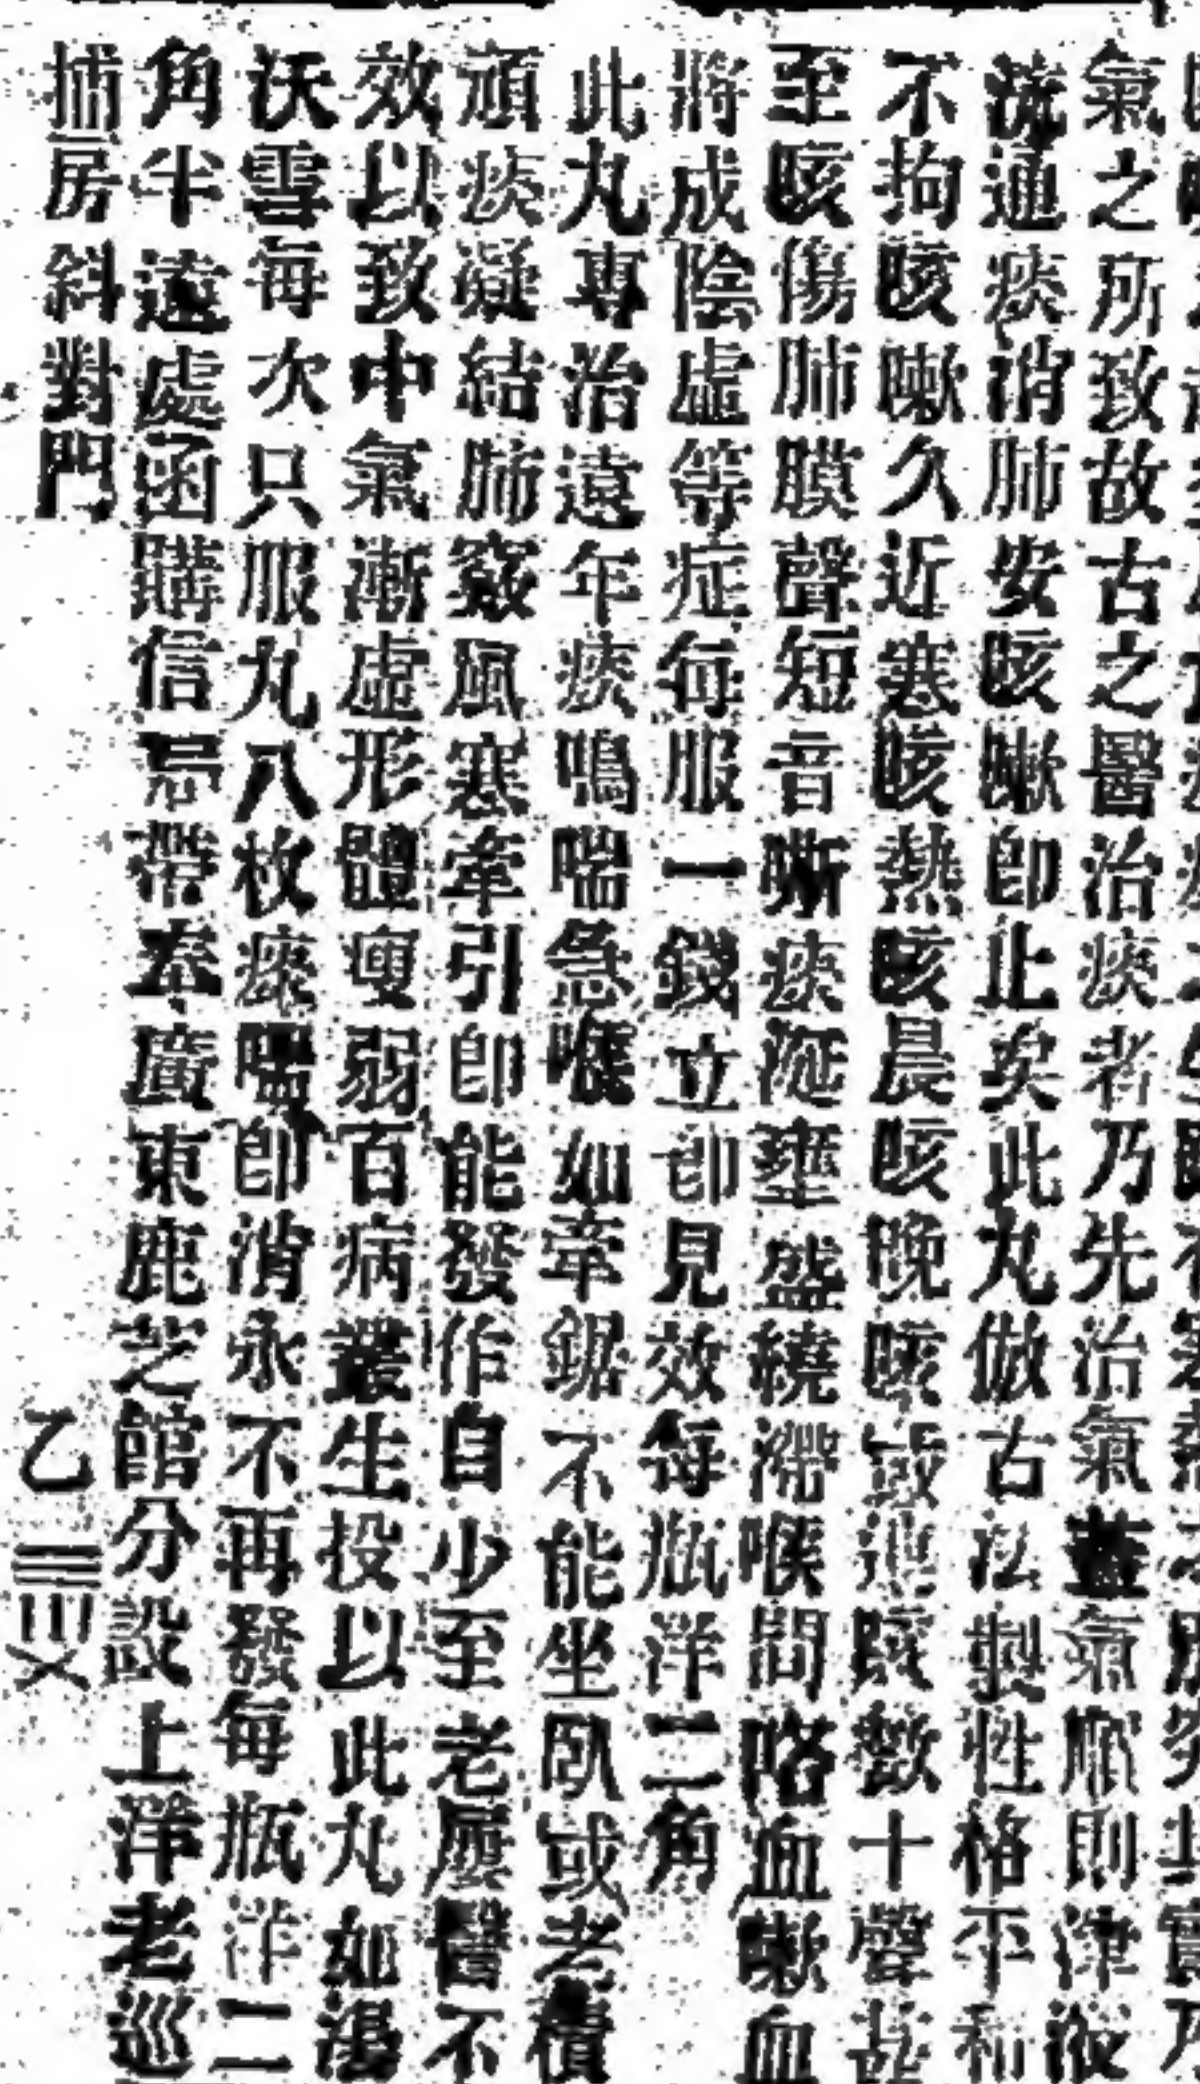 氣之所致故古之醫治痰者乃先治氣蓋氣順則津液
流通痰消肺安咳嗽卽止矣此丸倣古法製性格平和
不拘咳嗽久近寒咳熱咳晨咳晚咳或連咳數十聲甚
至咳傷肺膜聲短音嘶痰涎壅盛繞滯喉間咯血嗽血
將成陰虛等症每服一錢立卽見效每瓶洋二角
此丸專治遠年痰鳴喘急喉如牽鋸不能坐臥或老積
頑痰凝結肺竅風寒牽引卽能發作自少至老屢醫不
效以致中氣漸虛形體瘦弱百病叢生投以此丸如湯
沃雪每次只服丸八枚痰喘卽消永不再發每瓶洋二
角半遠處函購信局帶奉廣東鹿芝館分設上洋老巡
捕房斜對門 乙